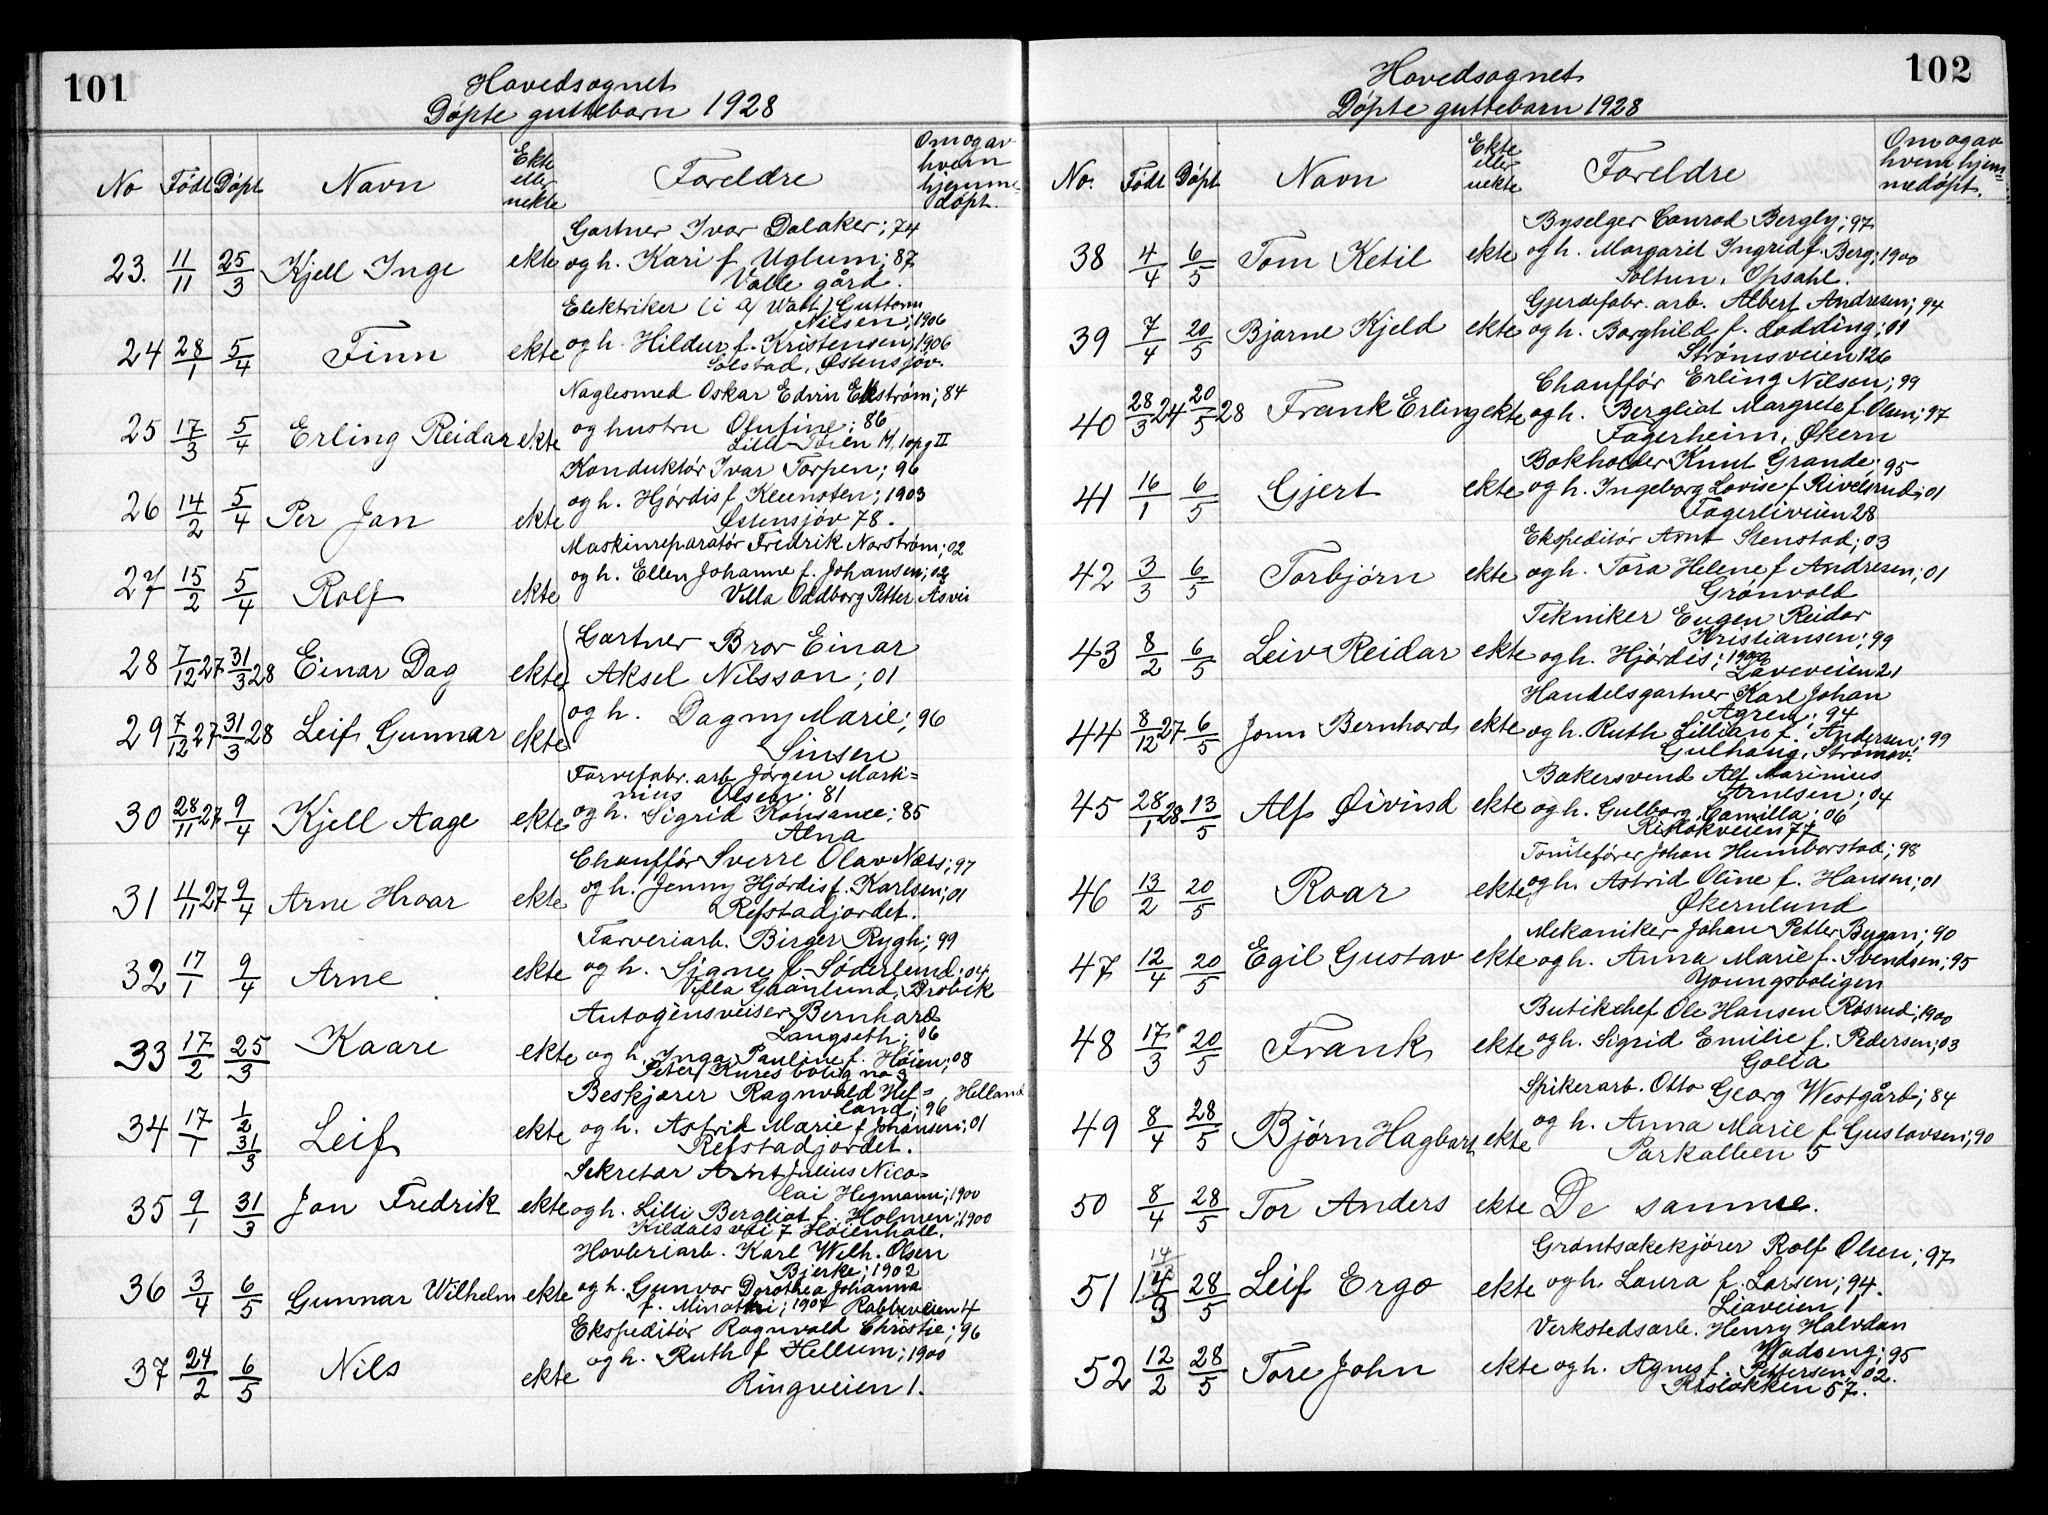 101
Hovedsognet
Døpte guttebarn 1928
No Født Døpt Navn Ekte eller uekte Foreldre Om og av hvem hjemmedøpt.
Gartner Ivar Dalaker; 74
23. 11/11 25/3 Kjell Inge ekte og h. Kari f. Uglum; 87
Valle gård.
Elektriker (i A/ Watt) Guttorm
Nilsen; 1906
24 28/1 5/4 Finn ekte og h. Hildur f. Kristensen, 1906
Solstad, Østensjøv.
Naglesmed Oskar Edvin Ekstrøm; 84
25 17/3 5/4 Erling Reidar ekte og hustru Olufine; 86
Lille Tøien 14, opg II
Konduktør Ivar Torpen; 96
26 14/2 5/4 Per Jan ekte og h. Hjørdis f. 1903
Østensjøv 78.
Maskinreparatør Fredrik Norstrøm; 02
27 15/2 5/4 Rolf ekte og h. Ellen Johanne f. Johansen; 02
Villa Oddborg Petter Åsvei
28 7/12 27 31/3 28 Einar Dag ekte Gartner Bror Einar
Aksel Nilsson; 01
29 7/12 27 31/3 28 Leif Gunnar ekte og h. Dagny Marie; 96
Sinsen
Farvefabr. arb. Jørgen Marti=
nius Olsen. 81
30 28/11 27 9/4 Kjell Aage ekte og h. Sigrid Konsance; 85
Alna
Chauffør Sverre Olav Næss; 97
31 4/11 27 9/4 Arne Hroar ekte og h. Jenny Hjørdis f. Karlsen; 01
Refstadjordet.
Farveriarb. Birger Rygh; 99
32 17/1 9/4 Arne ekte og h. Signe f. Søderlund; 04
Villa Granlund, Brobek
Autogensveiser Bernhard
Langseth; 06
33 17/2 25/3 Kaare ekte og h. Inga Pauline f. Høien; 08
Peter Kures bolig no 3
Beskjærer Ragnvald Hel= Helland
land; 96
34 17/1 1/2 31/3 Leif ekte og h. Astrid Marie f. Johansen; 01
Refstadjordet.
Sekretær Arnt Julius Nico=
lai Hegmann; 1900
35 9/1 31/3 Jan Fredrik ekte og h. Lilli Bergliot f. Holmen; 1900
Kildals vei 7 Høienhall.
Høvleriarb. Karl Wilh. Olsen
Bjerke; 1902
36 3/4 6/5 Gunnar Wilhelm ekte og h. Gunvor Dorothea Johanna
f. 1907 Rabbeveien 4
Ekspeditør Ragnvald Christie; 96
37 24/2 6/5 Nils ekte og h. Ruth f. Hellum; 1900
Ringveien 1.
102
Hovedsognet
Døpte guttebarn 1928
No. Født Døpt Navn Ekte eller uekte Foreldre Om og av hvem hjem=medøpt.
Byselger Conrad Bergly; 97
38 4/4 6/5 Tom Ketil ekte og h. Margarit Ingrid f. Berg; 1900
Soltun, Opsahl.
Gjerdefabr. arb. Albert Andresen; 94
39 7/4 20/5 Bjarne Kjeld ekte og h. Borghild f. Lodding; 01
Strømsveien 126
Chauffør Erling Nilsen; 99
40 28/3 24 20/5 28 Frank Erling ekte og h. Bergliot Margrete f. Olsen; 97
Fagerheim, Økern
Bokholder Knut Grande; 95
41 16/1 6/5 Gjert ekte og h. Ingeborg Lovise f. Rivelsrud; 01
Fagerliveien 28
Ekspeditør Arnt Stenstad; 03
42 3/3 6/5 Torbjørn ekte og h. Tora Helene f. Andresen; 01
Grønvold
Tekniker Eugen Reidar
Kristiansen; 99
43 8/2 6/5 Leiv Reidar ekte og h. Hjørdis; 1900
21
Handelsgartner Karl Johan
Ågren; 94
44 8/12 27 6/5 Jonn Bernhard ekte og h. Ruth Lillian f. Andersen; 99
Gulhaug, Strømsv.
Bakersvend Alf Marinius
Arnesen; 04
45 28/1 28 13/5 Alf Øivind ekte og h. Gulborg Camilla; 06
Risløkveien 77
Tomtefører Johan Humborstad; 98
46 13/2 20/5 Roar ekte og h. Astrid Oline f. Hansen; 01
Økernlund
Mekaniker Johan Petter Bygan; 90
47 12/4 20/5 Egil Gustav ekte og h. Anna Marie f. Svendsen; 95
Youngsboligen
Butikchef Ole Hansen Røsrud; 1900
48 17/3 20/5 Frank ekte og h. Sigrid Emilie f. Pedersen; 03
Golia
Spikerarb. Otto Georg Westgård; 84
49 8/4 28/5 Bjørn Hagbart ekte og h. Anna Marie f. Gustavsen; 90
Parkalleen 5
50 8/4 28/5 Tor Anders ekte De samme.
Grøntsakekjører Rolf Olsen; 97
51 14/3 28/5 Leif Ergo ekte og h. Laura f. Larsen; 94.
Liaveien 1
Verkstedsarb. Henry Halvdan
Wadseng; 95
52 12/2 28/5 Tore John ekte og h. Agnes f. Pettersen, 02.
Risløkken 57.